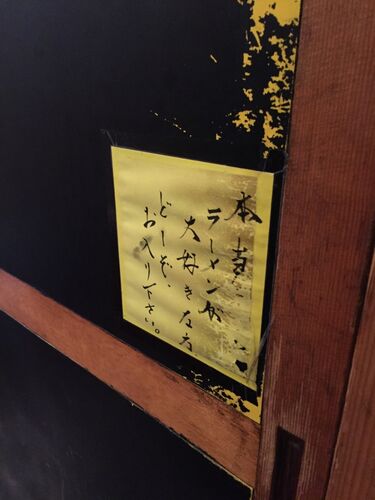 本当に
ラーメンが
大好きな方
どーぞ、
お入り下さい。